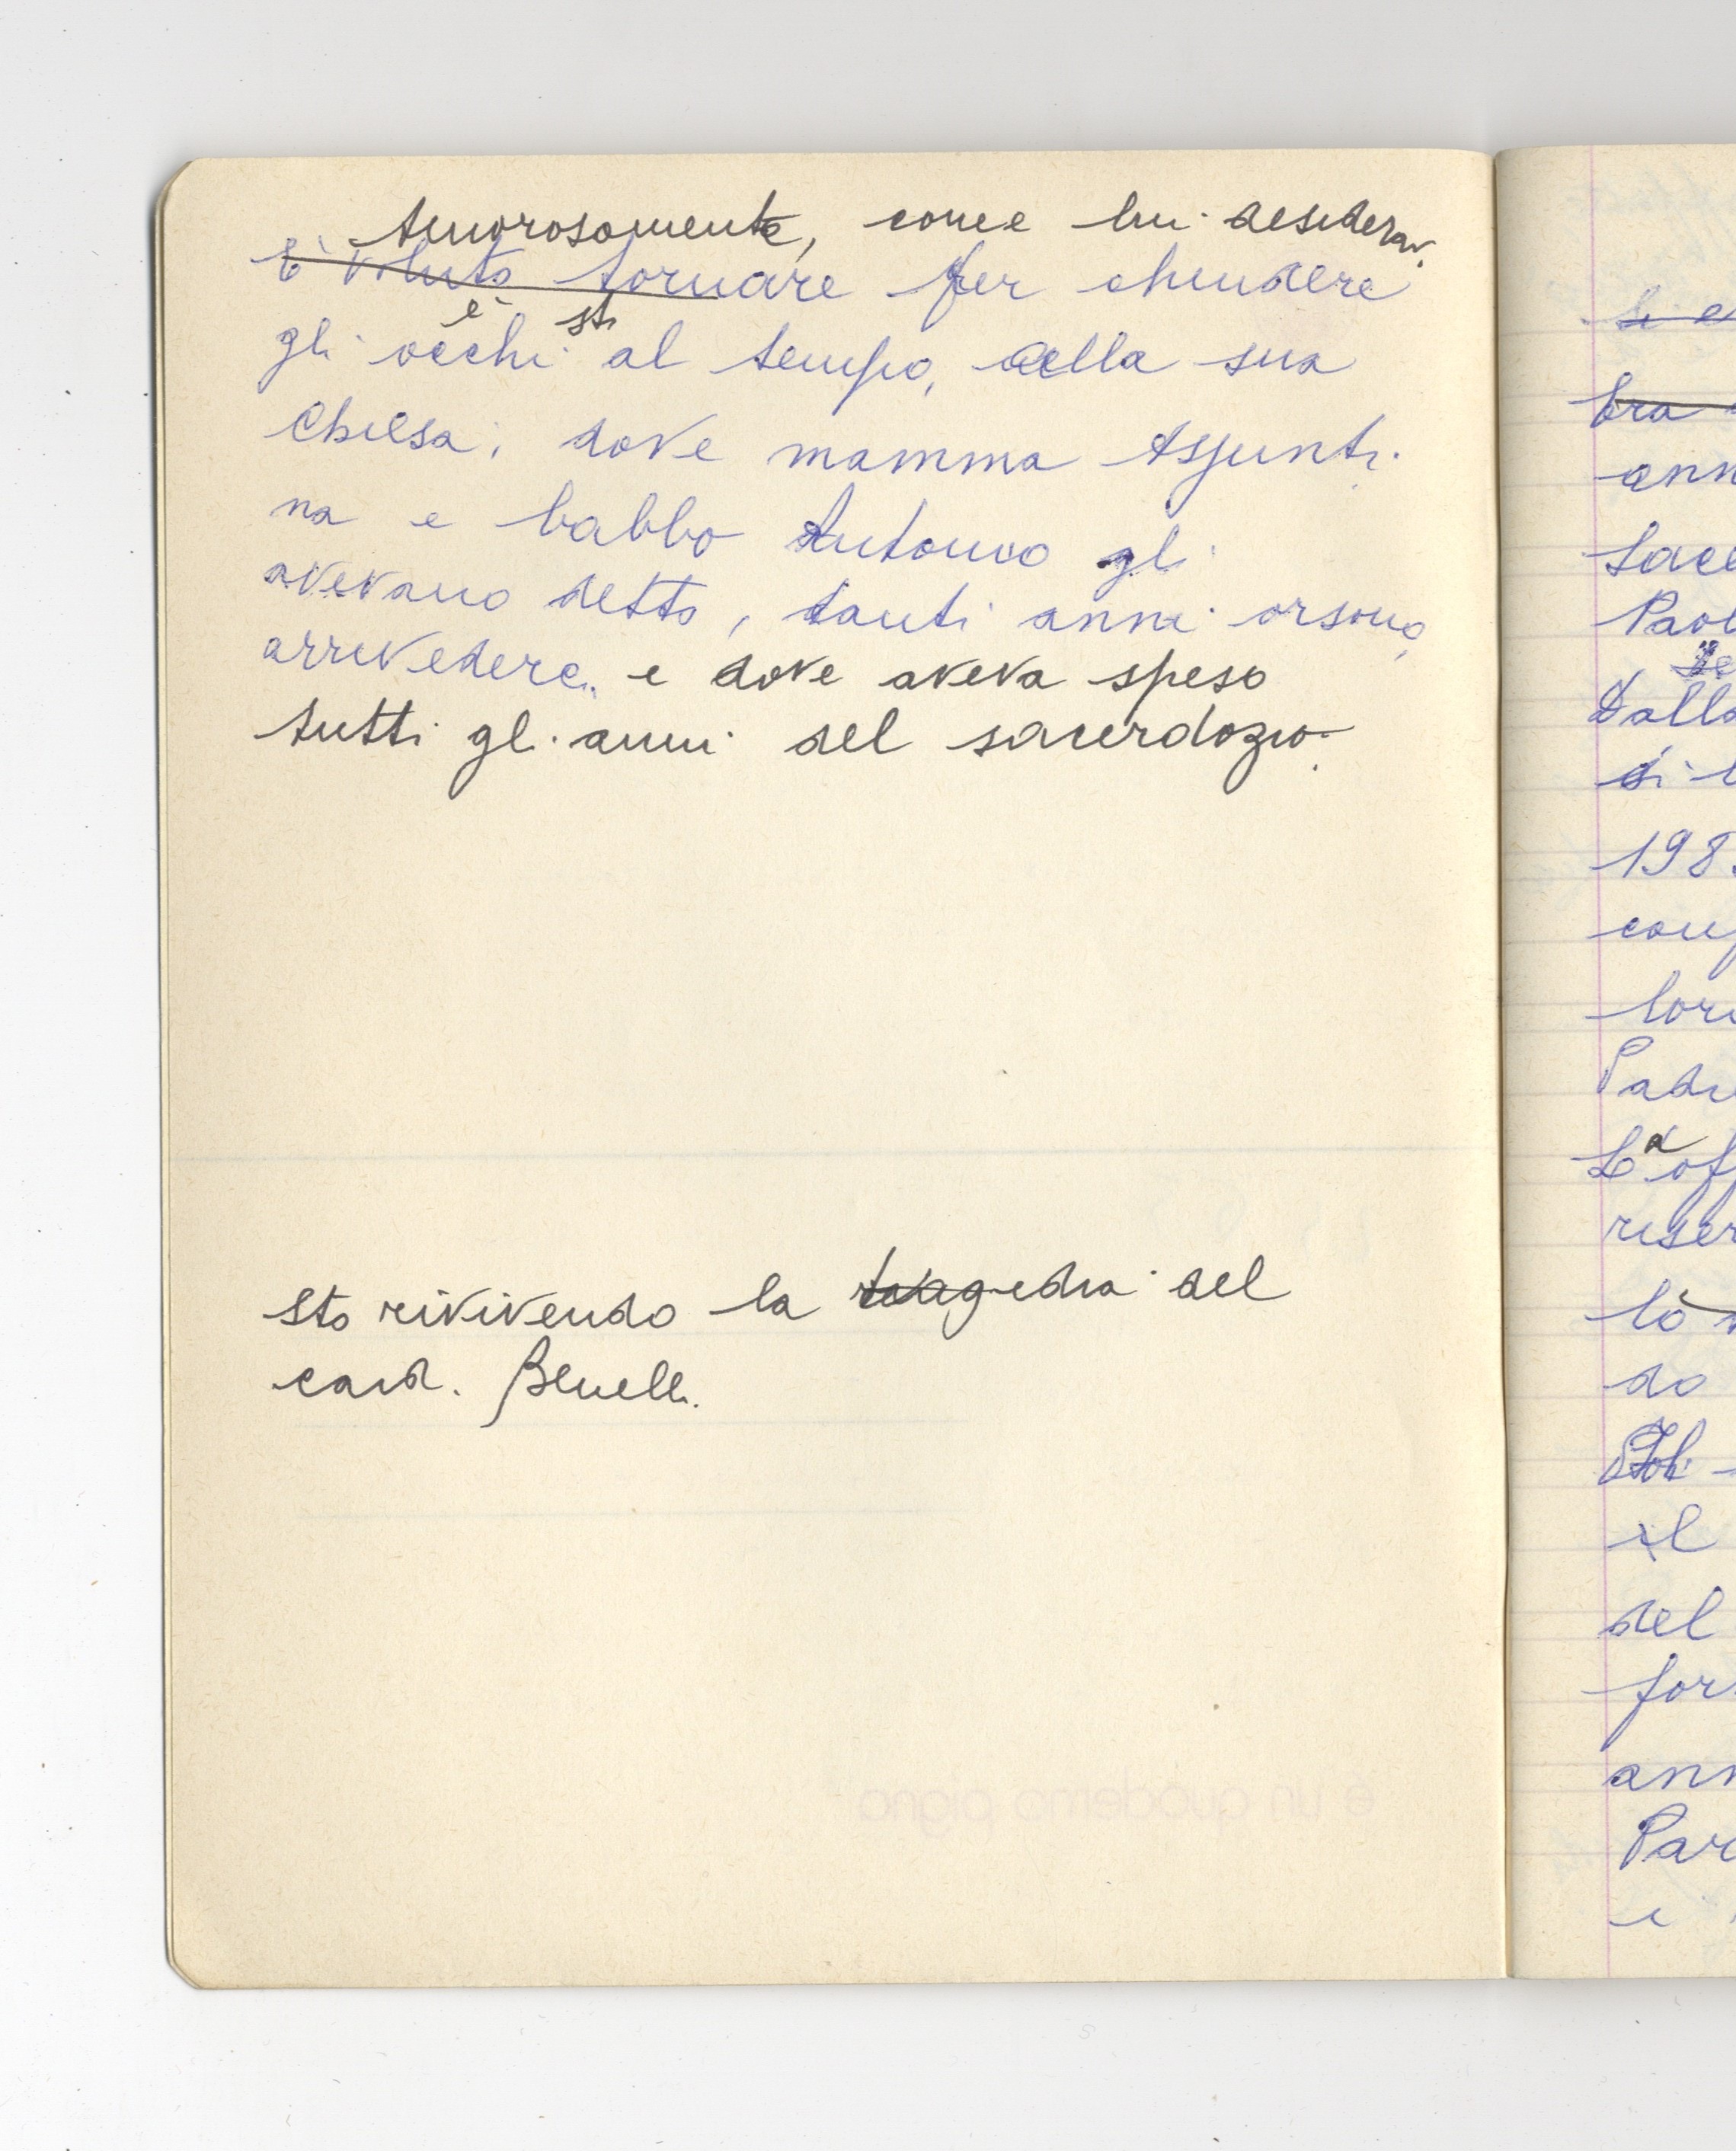 Amorosamente, come lui desiderav.
E' voluto tornare per chiudere
è sti
gli occhi al tempo, nella sua
Chiesa, dove mamma Assunti
na e babbo Antonio gli
avevano detto, tanti anni orsono,
arrivederci, e dove aveva speso
tutti gli anni del sacerdozio.
Sto rivivendo la tragedia del
card. Benelli.
è un quaderno pigna
Si e
Era
ann
Sace
Paol
Dalla
si
198
conf
lori
Padre
La of
riser
lò
do
il
del
for
ann
Par
e